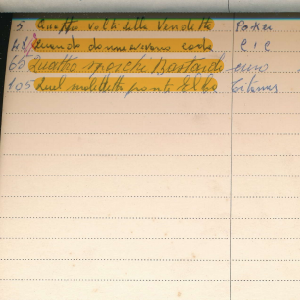 5 Quattro volti della Vendetta Poker
48 quando donne avevano coda C I C
65 Quattro sporchi Bastardi euro
105 Quel maledetto ponte Elba Titanus